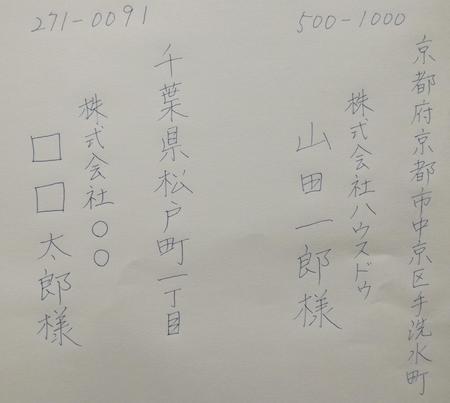 500-1000
京都府京都市中京区手洗水町
株式会社ハウスドゥ
山田一郎様
271-0091
千葉県松戸町一丁目
株式会社○○
□□太郎様